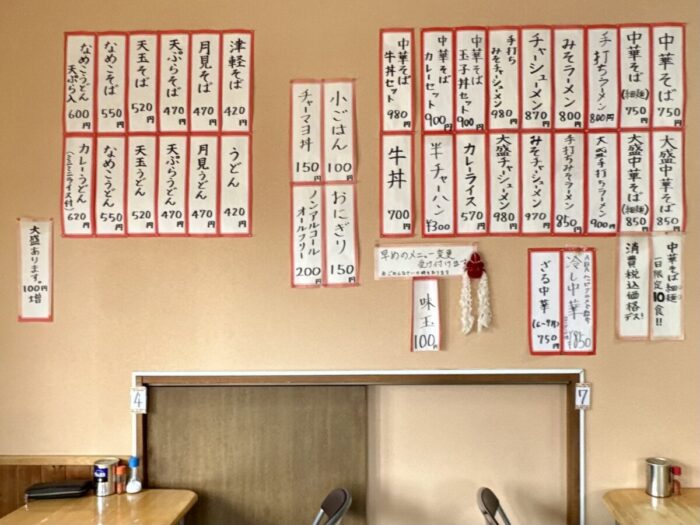 中華そば
750円
中華そば
(細麺)
750円
手打ちラーメン
800円
みそラーメン
800円
チャーシューメン
870円
手打ち
みそチャーシューメン
980円
中華そば
玉子丼セット
900円
中華そば
カレーセット
900円
中華そば
牛丼セット
980円
大盛中華そば
850円
大盛中華そば
(細麺)
850円
大盛手打ちラーメン
900円
手打ちみそラーメン
850円
みそチャーシューメン
970円
大盛チャーシューメン
980円
カレーライス
570円
半チャーハン
¥300
牛丼
700円
中華そば細麺
一日限定10食!!
消費税込価格
デス!
冷し中華
¥850
ざる中華
(6〜9月)
750円
早めのメニュー変更
受け付けます
味玉
100円
小ごはん
100円
チャーマヨ丼
150円
おにぎり
150円
ノンアルコール
オールフリー
200円
津軽そば
420円
月見そば
470円
天ぷらそば
470円
天玉そば
520円
なめこそば
550円
なめこうどん
天ぷら入
600円
うどん
420円
月見うどん
470円
天ぷらうどん
470円
天玉うどん
520円
なめこうどん
550円
カレーうどん
(ミニライス付)
620円
大盛あります。
100円
増
4
7